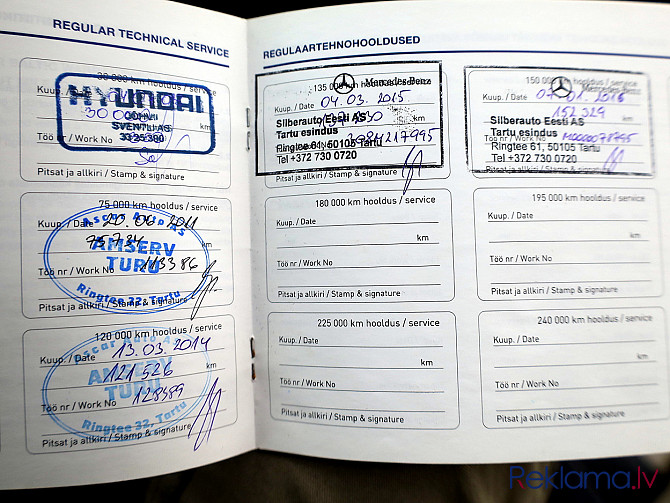 REGULAR TECHNICAL SERVICE
30 000 km hooldus / service
Kuup. / Date
HYUNDAI
30 000
JÕHVI
SVENTU AS
33 25 390
Töö nr / Work No
Pitsat ja allkiri / Stamp & signature
75 000 km hooldus / service
Ascar Auto AS
Kuup. / Date 20.06 2011
75 734 km
AMSERV
TURU
Töö nr / Work No 113386
Ringtee 32, Tartu
Pitsat ja allkiri / Stamp & signature
120 000 km hooldus / service
Ascar Auto AS
Kuup. / Date 13.03.2014
121 526 km
AMSERV
TURU
Töö nr / Work No 128389
Ringtee 32, Tartu
Pitsat ja allkiri / Stamp & signature
REGULAARTEHNOHOOLDUSED
135 000 km hooldus / service
Mercedes-Benz
Kuup. / Date 04.03.2015
Silberauto Eesti AS
Tartu esindus
Ringtee 61, 50105 Tartu
Tel +372 730 0720
Pitsat ja allkiri / Stamp & signature
150 000 km hooldus / service
Mercedes-Benz
Kuup. / Date
152 329
Silberauto Eesti AS
Tartu esindus
Ringtee 61, 50105 Tartu
Tel +372 730 0720
Pitsat ja allkiri / Stamp & signature
180 000 km hooldus / service
Kuup. / Date
km
Töö nr / Work No
Pitsat ja allkiri / Stamp & signature
195 000 km hooldus / service
Kuup. / Date
km
Töö nr / Work No
Pitsat ja allkiri / Stamp & signature
225 000 km hooldus / service
Kuup. / Date
km
Töö nr / Work No
Pitsat ja allkiri / Stamp & signature
240 000 km hooldus / service
Kuup. / Date
km
Töö nr / Work No
Pitsat ja allkiri / Stamp & signature
Reklama.lv